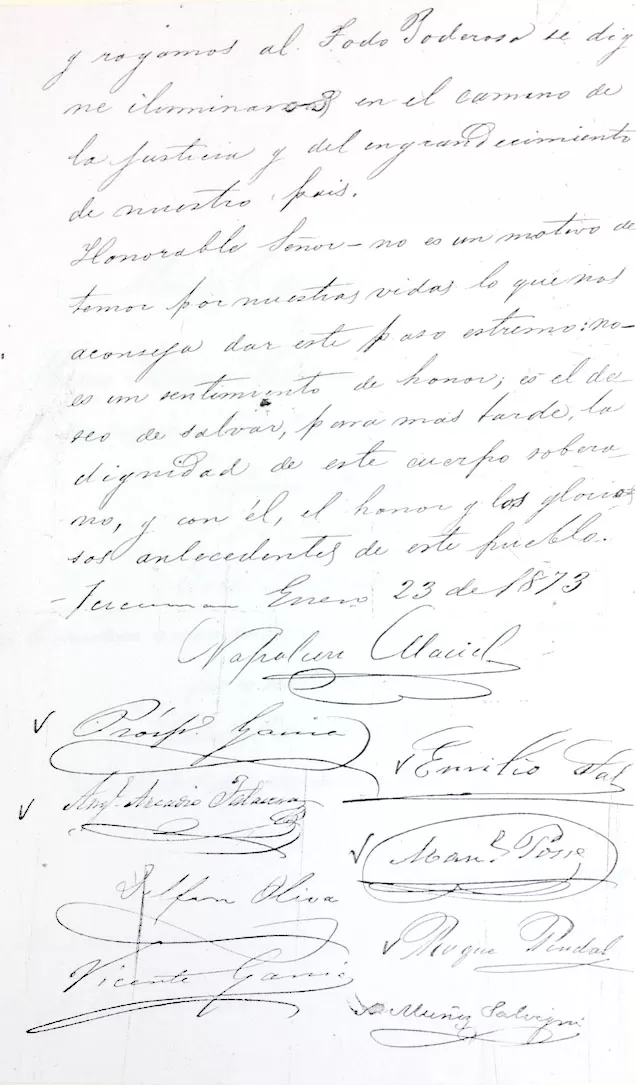 y rogamos al Todo Poderoso se dig
ne iluminarnos en el camino de
la justicia y del engrandecimiento
de nuestro pais.
Honorable Señor – no es un motivo de
temor por nuestras vidas lo que nos
aconseja dar este paso estremo: no –
es un sentimiento de honor; es el de
seo de salvar, para mas tarde, la
dignidad de este cuerpo sobera
no, y con él, el honor y los glorio
sos antecedentes de este pueblo.
– Tucuman Enero 23 de 1873
Napoleon Maciel
Próspº. Garcia
Emilio Sal
Angl. Arcadio Talavera
Manl. Posse
Delfin Oliva
Roque
Vicente Garcia
Muñoz